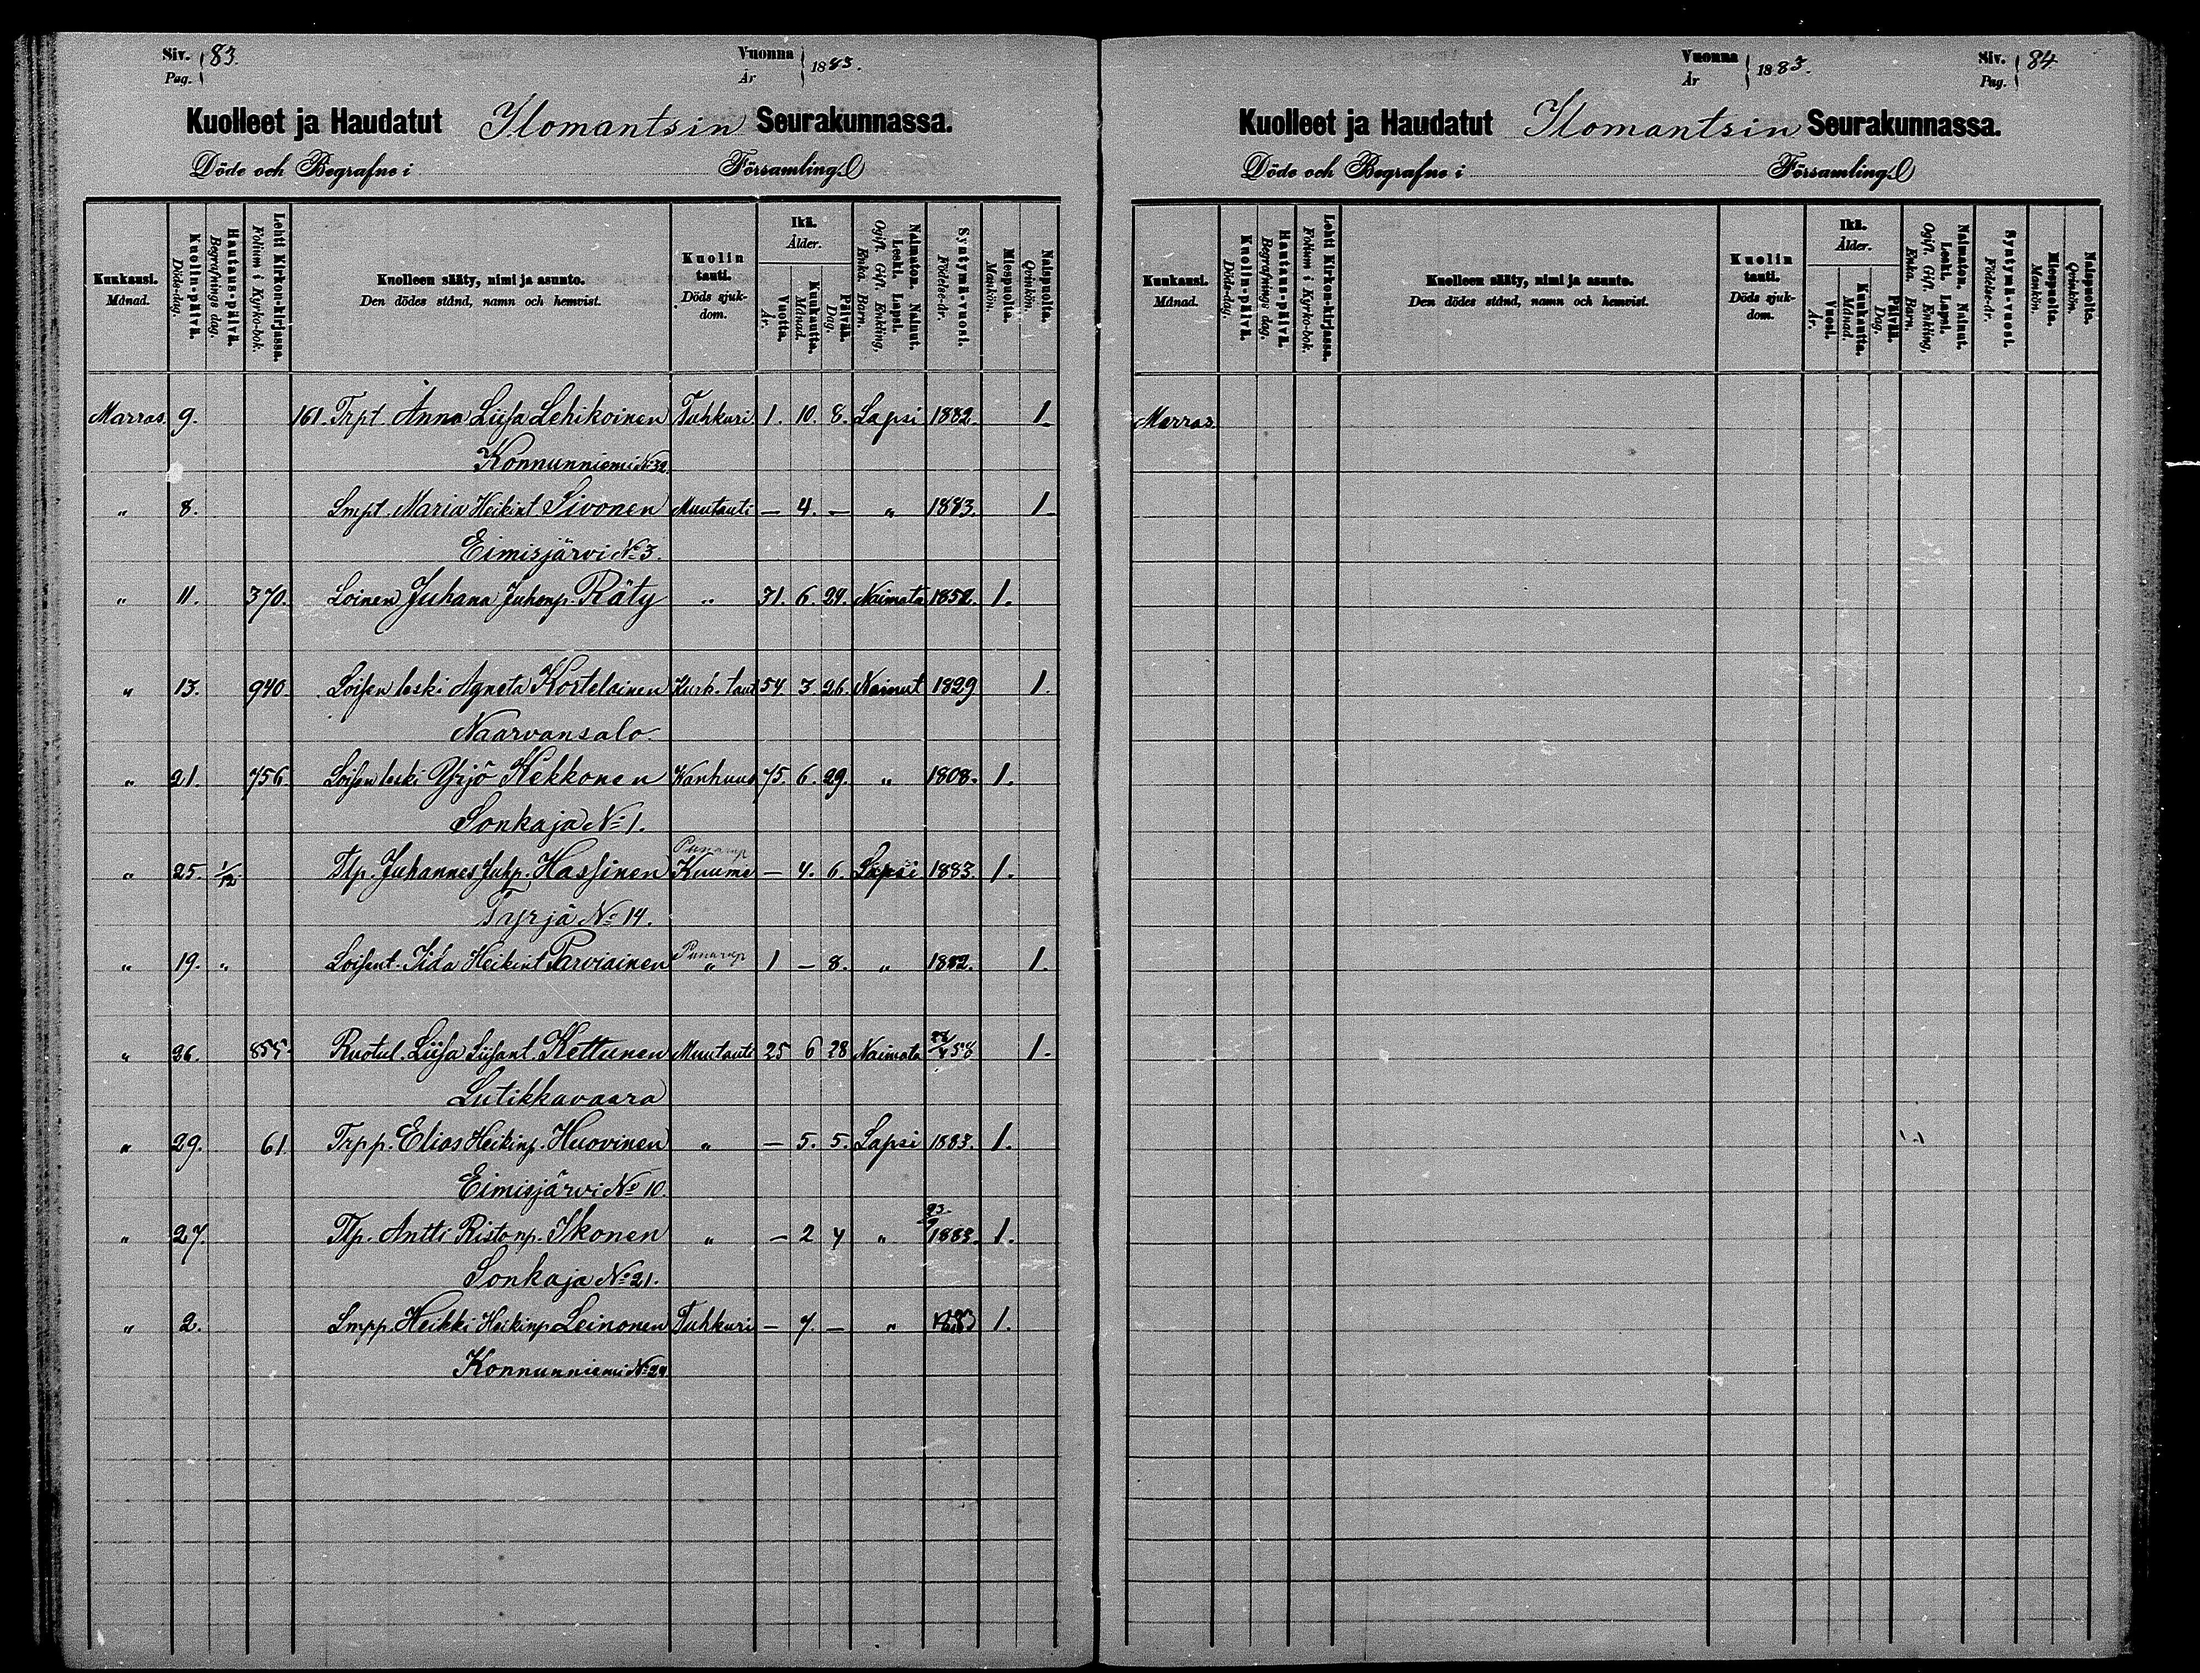 Siv. 83.
Pag.
Vuonna 1883.
År
Kuolleet ja Haudatut Ilomantsin Seurakunnassa.
Döde och Begrafne i Församling.
Kuukausi. Månad.
Kuolin-päivä. Döds-dag.
Hautaus-päivä. Begrafnings dag.
Lehti Kirkon-kirjassa. Folium i Kyrko-bok.
Kuolleen sääty, nimi ja asunto. Den dödes stånd, namn och hemvist.
Kuolin tauti. Döds sjuk-dom.
Ikä. Ålder.
Vuotta. År.
Kuukautta. Månad.
Päivää. Dag.
Naimaton. Nainut. Leski. Lapsi. Ogift. Gift. Enkling, Enka. Barn.
Syntymä-vuosi. Födelse-år.
Miespuolta. Mankön.
Naispuolta. Qvinkön.
Marras. 9. 161. Trpt. Anna Liisa Lehikoinen Tuhkuri 1. 10. 8. Lapsi 1882. 1.
Konnunniemi No 32.
" 8. Lmpt. Maria Heikint. Sivonen Muutauti — 4. — " 1883. 1.
Eimisjärvi No 3.
" 11. 370. Loinen Juhana Juhonp. Räty " 31. 6. 24. Naimata 1852. 1.
" 13. 940 Loisen leski Agneta Kortelainen 54 3 26. Nainut 1829 1.
Naarvansalo.
" 21. 756. Loisen leski Yrjö Kekkonen Wanhuus 75. 6. 29. " 1808. 1.
Sonkaja No 1.
" 25. 1/12. Tlp. Juhannes Juhp. Hassinen Kuume — 4. 6. Lapsi 1883. 1.
Tyrjä No 14.
" 19. " Loisent. Iida Heikint Parviainen " 1 — 8. " 1882. 1.
" 26. 855. Ruotul. Liisa Liisant. Kettunen Muutauti 25 6 28 Naimata 58 1.
Lutikkavaara
" 29. 61 Trpp. Elias Heikinp. Huovinen " — 5. 5. Lapsi 1883. 1.
Eimisjärvi No 10.
" 27. Tlp. Antti Ristonp. Ikonen " — 2 4 " 23/9 1883. 1.
Sonkaja No 21.
" 2. Lmpp. Heikki Heikinp Leinonen Tuhkuri — 7. — " 1883 1.
Konnunniemi No 24
Vuonna 1883.
År
Siv. 84
Pag.
Kuolleet ja Haudatut Ilomantsin Seurakunnassa.
Döde och Begrafne i Församling.
Kuukausi. Månad.
Kuolin-päivä. Döds-dag.
Hautaus-päivä. Begrafnings dag.
Lehti Kirkon-kirjassa. Folium i Kyrko-bok.
Kuolleen sääty, nimi ja asunto. Den dödes stånd, namn och hemvist.
Kuolin tauti. Döds sjuk-dom.
Ikä. Ålder.
Vuosi. År.
Kuukautta. Månad.
Päivää. Dag.
Naimaton. Nainut. Leski. Lapsi. Ogift. Gift. Enkling, Enka. Barn.
Syntymä-vuosi. Födelse-år.
Miespuolta. Mankön.
Naispuolta. Qvinkön.
Marras